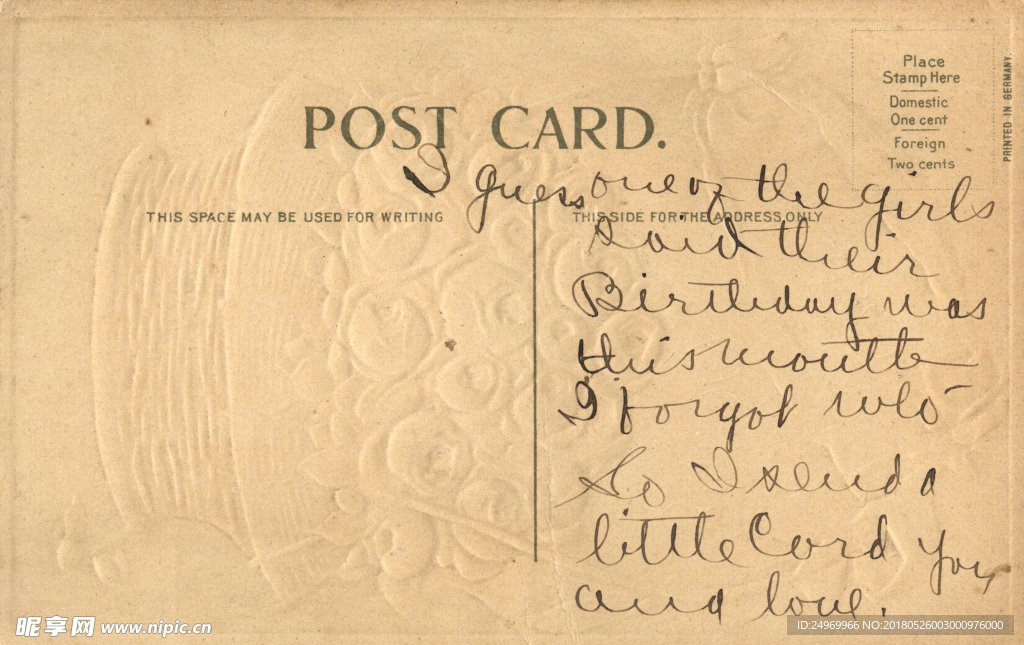 Place
Stamp Here
Domestic
One cent
Foreign
Two cents
PRINTED IN GERMANY.
POST CARD.
THIS SPACE MAY BE USED FOR WRITING
THIS SIDE FOR THE ADDRESS ONLY
I guess one of the girls
said their
Birthday was
this month
I forgot who
So I send a
little Card you
and love.
昵享网 www.nipic.cn
ID:24969966 NO:20180526003000976000